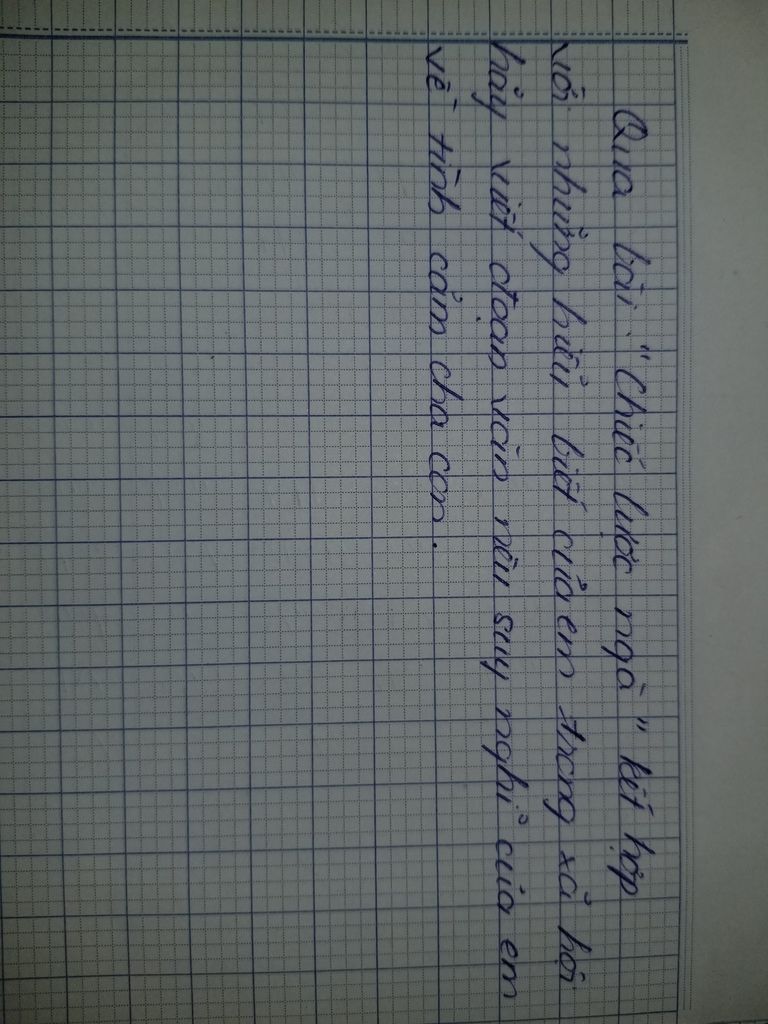 Qua bài "Chiếc lược ngà" kết hợp
với những hiểu biết của em trong xã hội
hãy viết đoạn văn nêu suy nghĩ của em
về tình cảm cha con.